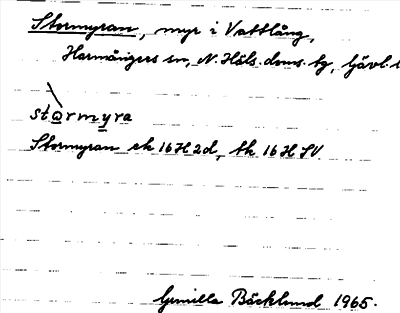 Stormyran, myr i Vattlång,
Harmångers sn, N. Häls. doms. tg, Gävl. l
stormyra
Stormyran ek 16 H 2d, tk 16 H SV.
Gunilla Bäcklund 1965.